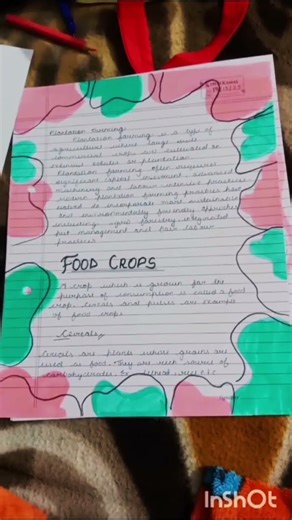 Plantation Farming
Plantation farming is a type of
agriculture where large scale
commercial crops are cultivated on
estates on plantation
Plantation farming often requires
significant capital investment, advanced
machinery and labour intensive practices
modern plantation farming practices have
to incorporate more sustainable
and environmentally friendly approaches
including agro forestry integrated
pest management and fair labour
practices
FOOD CROPS
A crop which is grown for the
purpose of consumption is called a food
crop. Cereals and pulses are example
of food crop.
Cereals
Cereals are plants whose grains are
used as food. They are rich source of
carbohydrates. Eg
InShOt